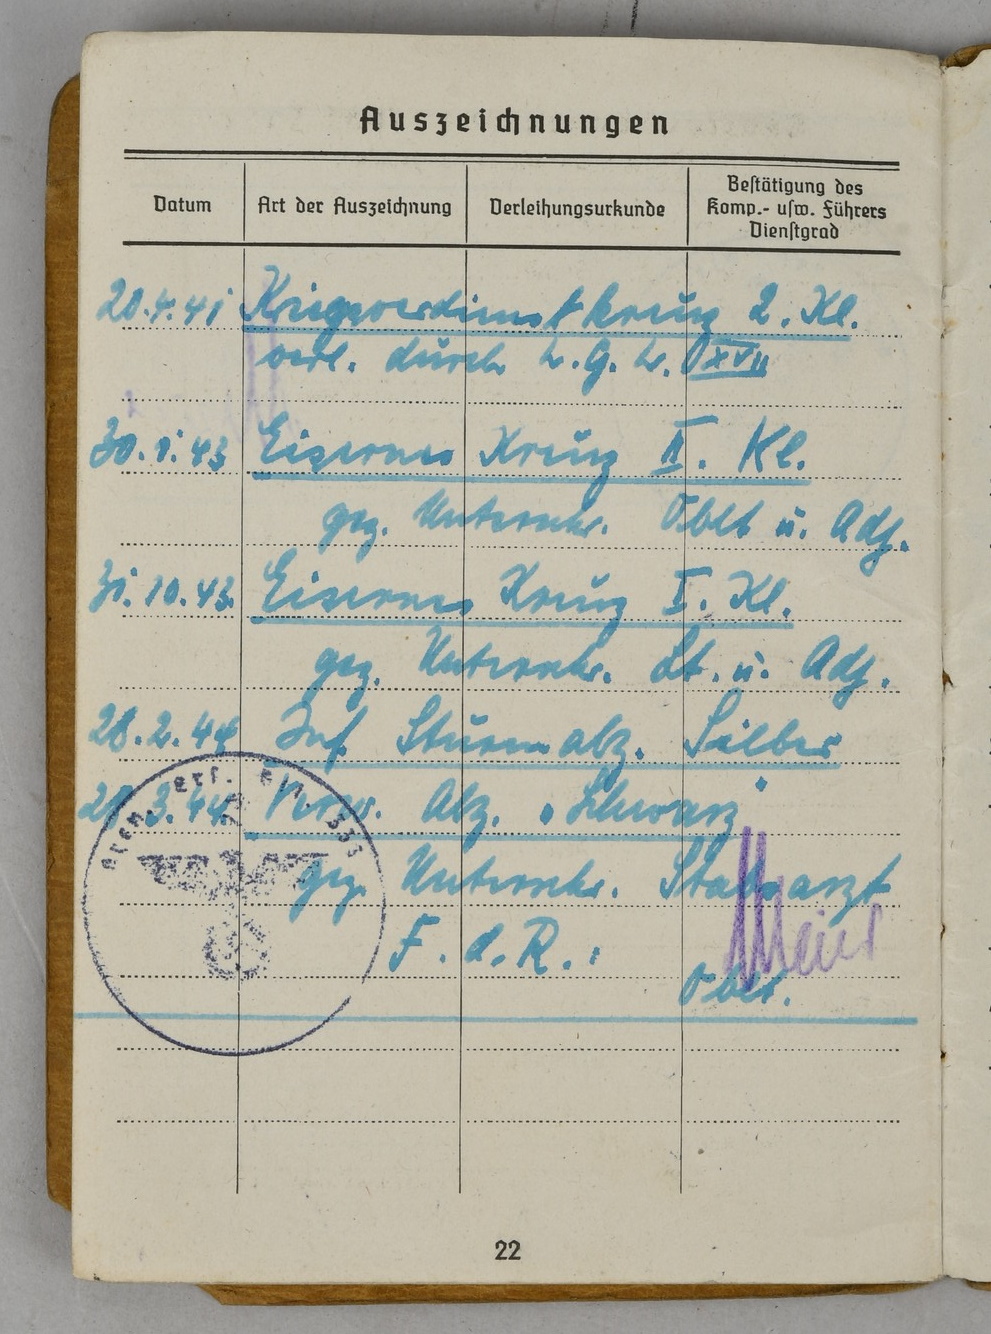 Auszeichnungen
Datum
Art der Auszeichnung
Verleihungsurkunde
Bestätigung des
Komp.- usw. Führers
Dienstgrad
20.4.41 Kriegsverdienstkreuz 2. Kl.
verl. durch W.G.K. XVII
30.1.43 Eisernes Kreuz II. Kl.
gez. Unterschr. Oblt u. Adj.
31.10.43. Eisernes Kreuz I. Kl.
gez. Unterschr. Lt. u. Adj.
28.2.44 Inf Sturmabz. Silber
3.44 Verw. Abz. "Schwarz"
gez. Unterschr. Stabsarzt
F. d. R.:
Meier
Oblt.
22